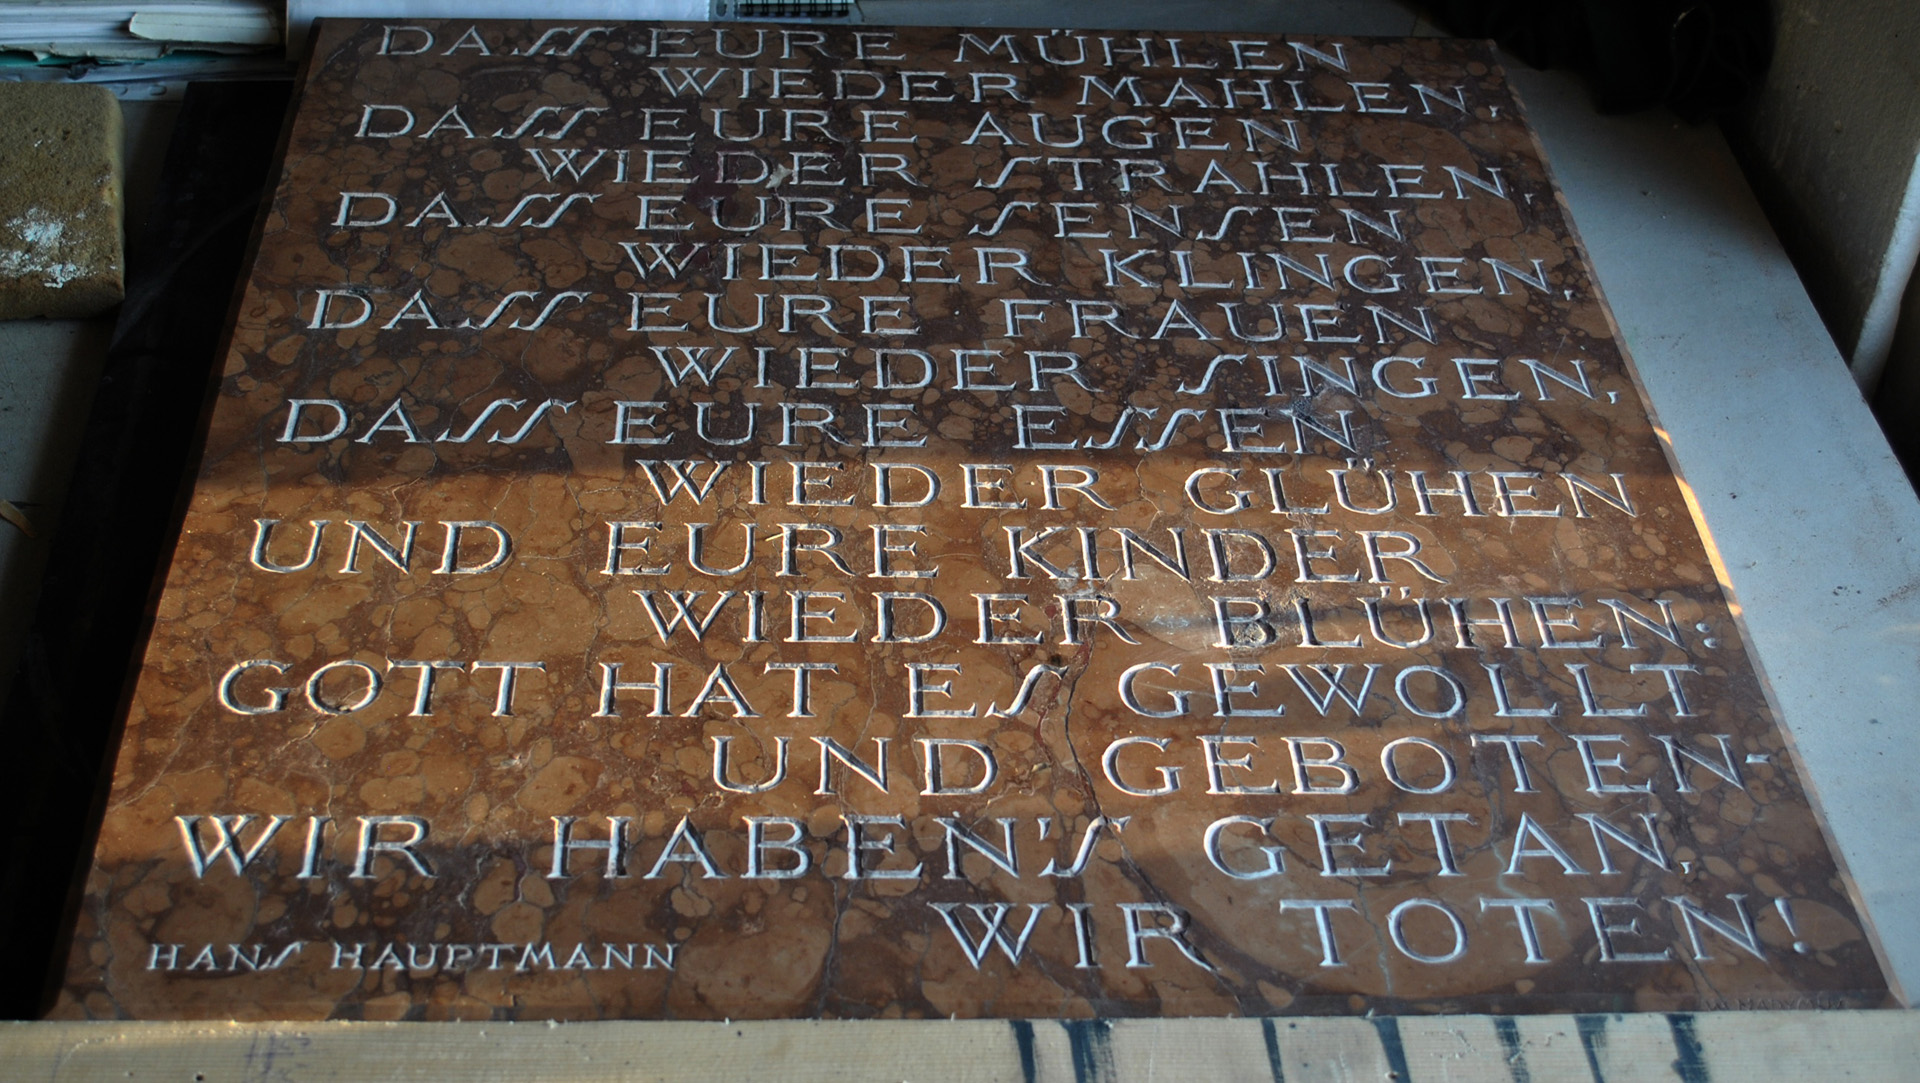 DASS EURE MÜHLEN
WIEDER MAHLEN,
DASS EURE AUGEN
WIEDER STRAHLEN,
DASS EURE SENSEN
WIEDER KLINGEN,
DASS EURE FRAUEN
WIEDER SINGEN,
DASS EURE ESSEN
WIEDER GLÜHEN
UND EURE KINDER
WIEDER BLÜHEN:
GOTT HAT ES GEWOLLT
UND GEBOTEN-
WIR HABEN'S GETAN,
WIR TOTEN!
HANS HAUPTMANN